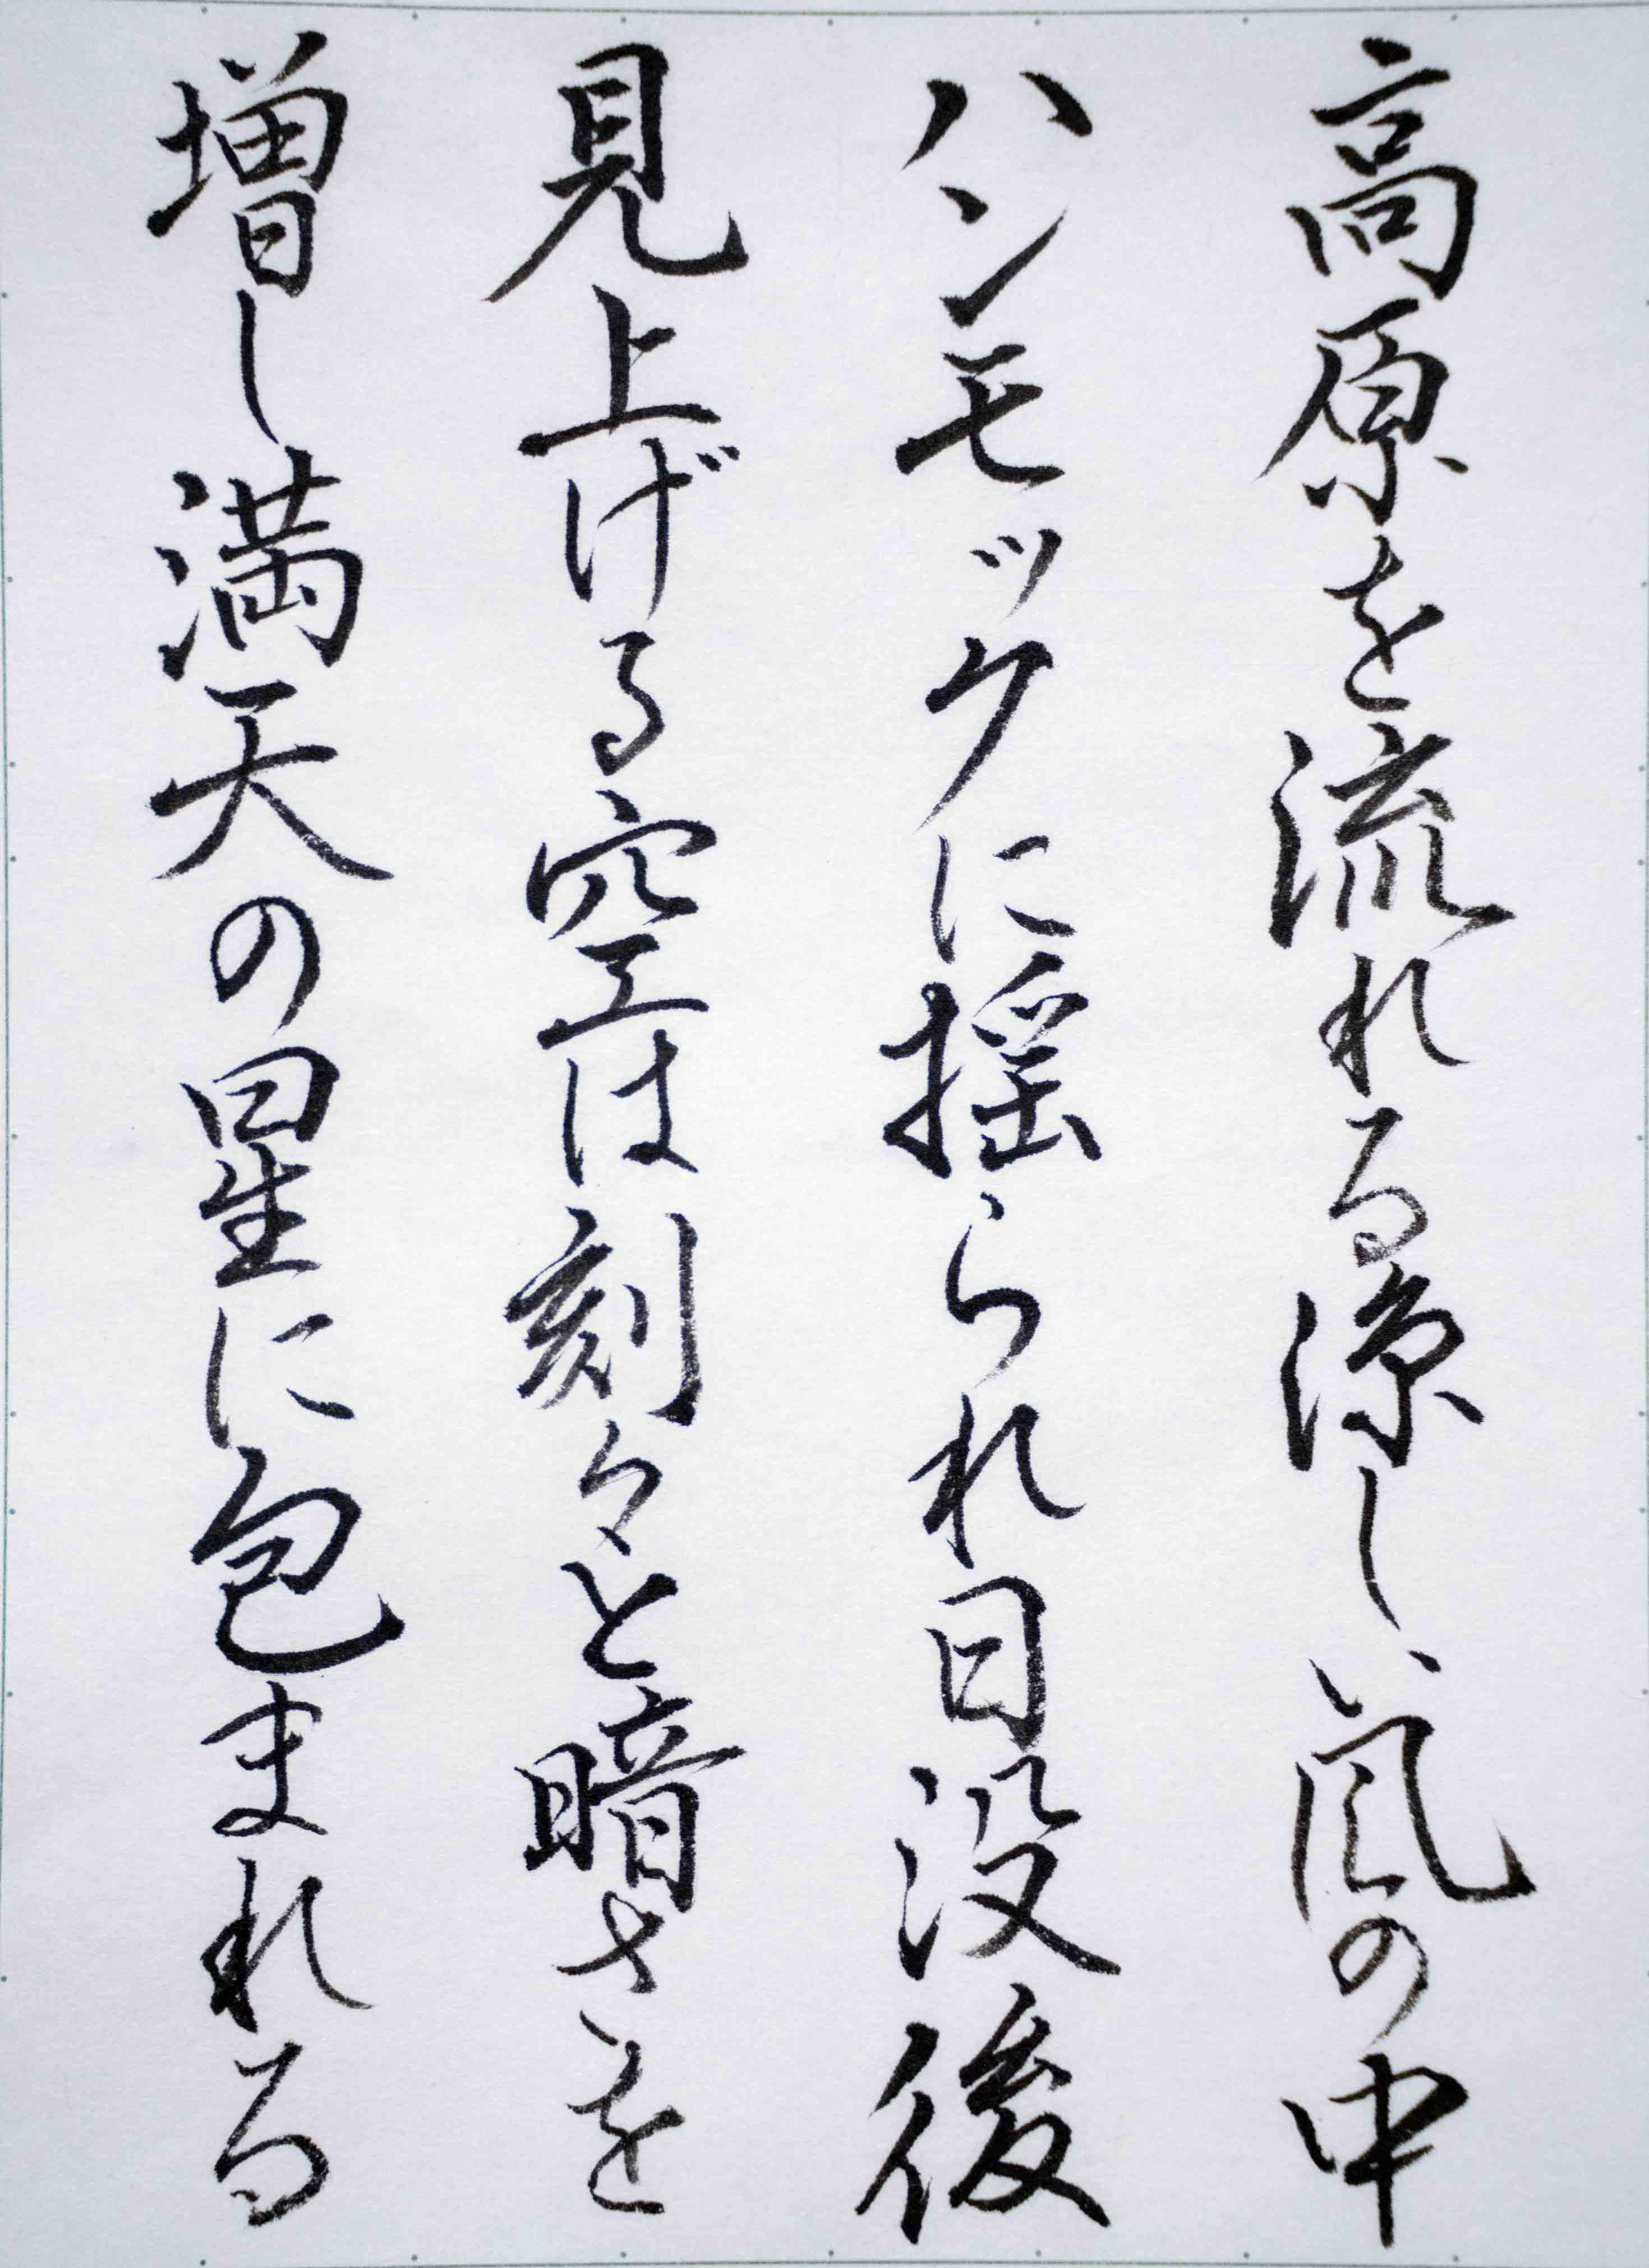 高原を流れる涼しい風の中
ハンモックに揺られ日没後
見上げる空は刻々と暗さを
増し満天の星に包まれる